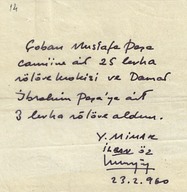 14
Çoban Mustafa Paşa
camiine ait 25 levha
rölöve krokisi ve Damat
İbrahim Paşa'ya ait
3 levha rölöve aldım.
Y. Mimar
İlban Öz
23.2.960